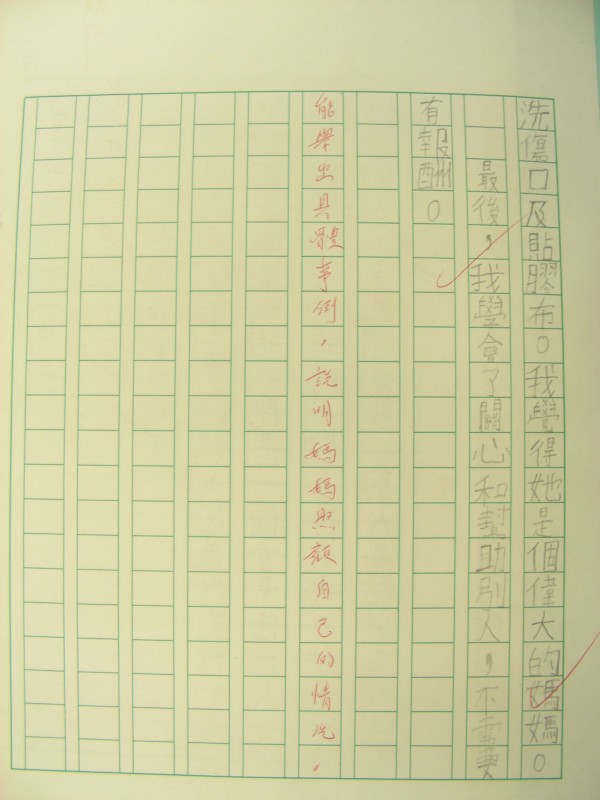 洗傷口及貼膠布。我覺得她是個偉大的媽媽。
最後，我學會了關心和幫助別人，不需要
有報酬。
能舉出具體事例，說明媽媽照顧自己的情況。